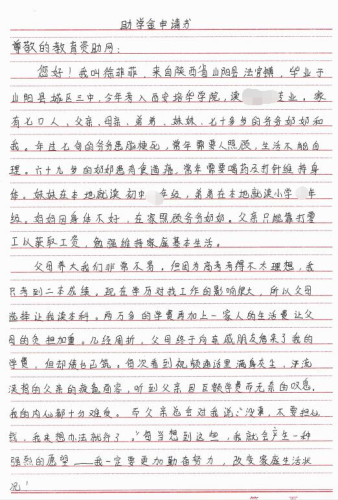 助学金申请书
尊敬的教育资助网：
您好！我叫徐菲菲，来自陕西省山阳县法官镇，毕业于
山阳县城区三中，今年考入西安培华学院，读 专业。家
有七口人，父亲、母亲、弟弟、妹妹、七十多岁的爷爷奶奶和
我。年近七旬的爷爷患脑梗死，常年需要人照顾，生活不能自
理。六十九岁的奶奶患有食道癌，常年需要喝药及打针维持身
体。妹妹在本地就读初中 年级，弟弟在本地就读小学 年
级。妈妈因身体不好，在家照顾爷爷奶奶。父亲只能靠打零
工以获取工资，勉强维持家庭基本生活。
父母养大我们非常不易，但因为高考考得不太理想，我
只考到二本成绩。现在学历对找工作的影响很大，所以父母
选择让我读本科。两万多的学费再加上一家人的生活费让父
母的负担加重。几经周折，父母终于向亲戚朋友借来了我的
学费，但却债台已筑。每次看到视频通话里满身灰尘，汗流
浃背的父亲的疲惫面容，听到父亲因巨额学费而无奈的叹息，
我的内心都十分难受。而父亲总会对我说：“没事，不要担心
钱，我来想办法就行了。”每当想到这些，我就会产生一种
强烈的愿望——我一定要更加勤奋努力，改变家庭生活状
况！
第 页